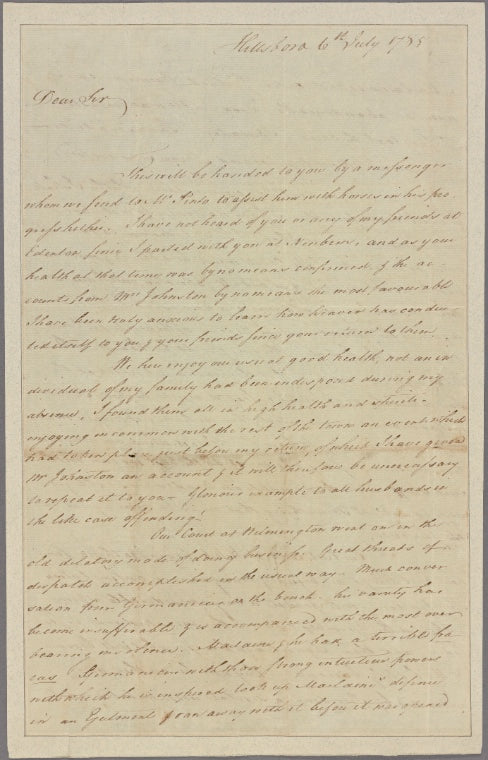 Hillsboro 6th July 1785
Dear Sir
This will be handed to you by a messenger
whom we send to Mr Pinto to assist him with horses in his pro
gress hither. I have not heard of you or any of my friends at
Edenton since I parted with you at Newbern, and as your
health at that time was by no means confirmed & the ac
counts from Mrs Johnston by no means the most favourable
I have been truly anxious to learn how Heaven has conduc
ted itself to you & your friends since your return to them
We here enjoy our usual good health, not an in
dividual of my family had been indisposed during my
absence, I found them all in high health and spirits
enjoying in common with the rest of the town an event which
had taken place just before my return, of which I have given
Mr Johnston an account & it will therefore be unnecessary
to repeat it to you — Glorious example to all husbands in
the like case offending!
Our Court at Wilmington went on in the
old dilatory mode of doing business. Great threats of
dispatch accomplished in the usual way. Much conver
sation from Germanicus on the bench. his vanity has
become insufferable & is accompanied with the most over
bearing insolence. Maclaine & he had a terrible fra
cas Germanicus with those strong intuitive powers
with which he is inspired took up Maclaine's defence
in an Ejectment & ran away with it before it was opened